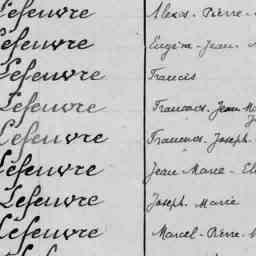 Lefeuvre Alexis - Pierre -
Lefeuvre Eugène - Jean -
Lefeuvre Francis
Lefeuvre Francois - Jean
Lefeuvre Francois - Joseph
Lefeuvre Jean Marie -
Lefeuvre Joseph Marie
Lefeuvre Marcel - Pierre -